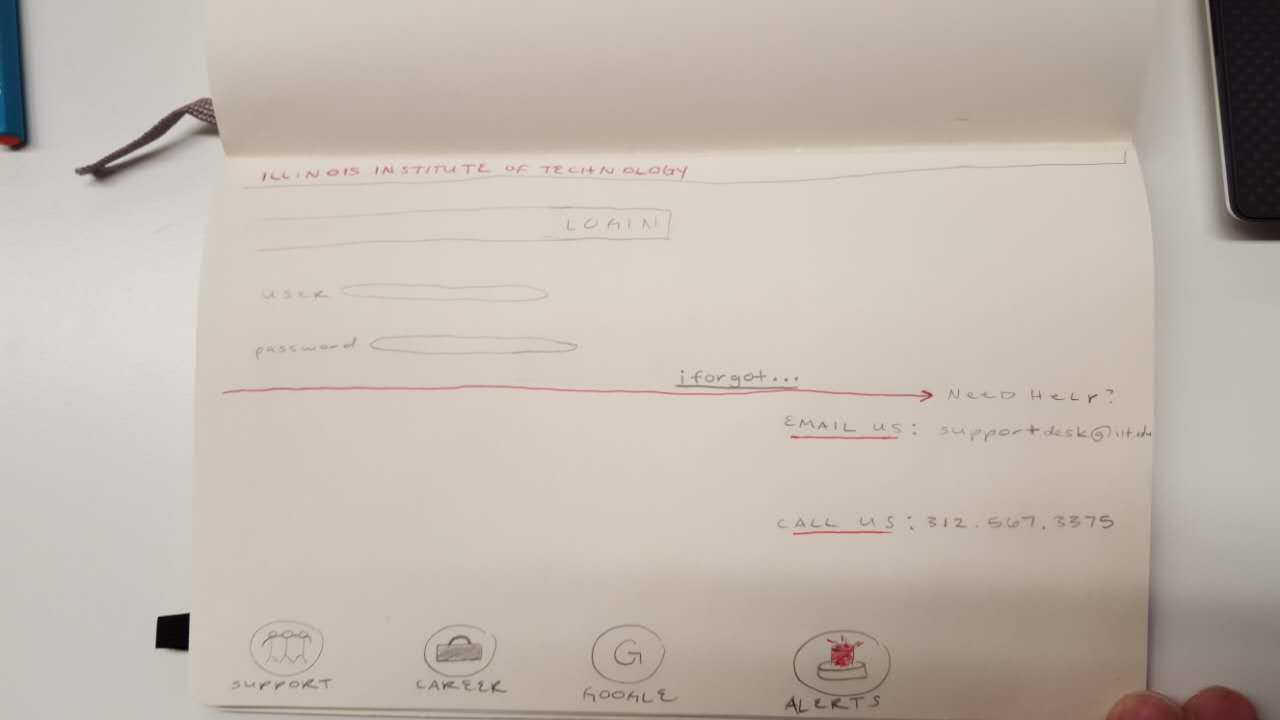 ILLINOIS INSTITUTE OF TECHNOLOGY
LOGIN
user
password
i forgot...
NEED HELP?
EMAIL US: supportdesk@iit.edu
CALL US: 312.567.3375
SUPPORT
CAREER
G
GOOGLE
ALERTS